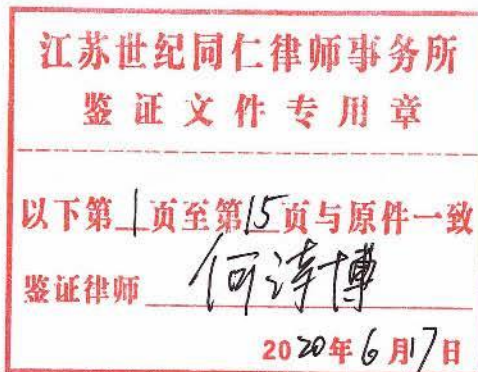 江苏世纪同仁律师事务所
鉴证文件专用章
以下第1页至第15页与原件一致
鉴证律师 何诗博
2020年6月17日